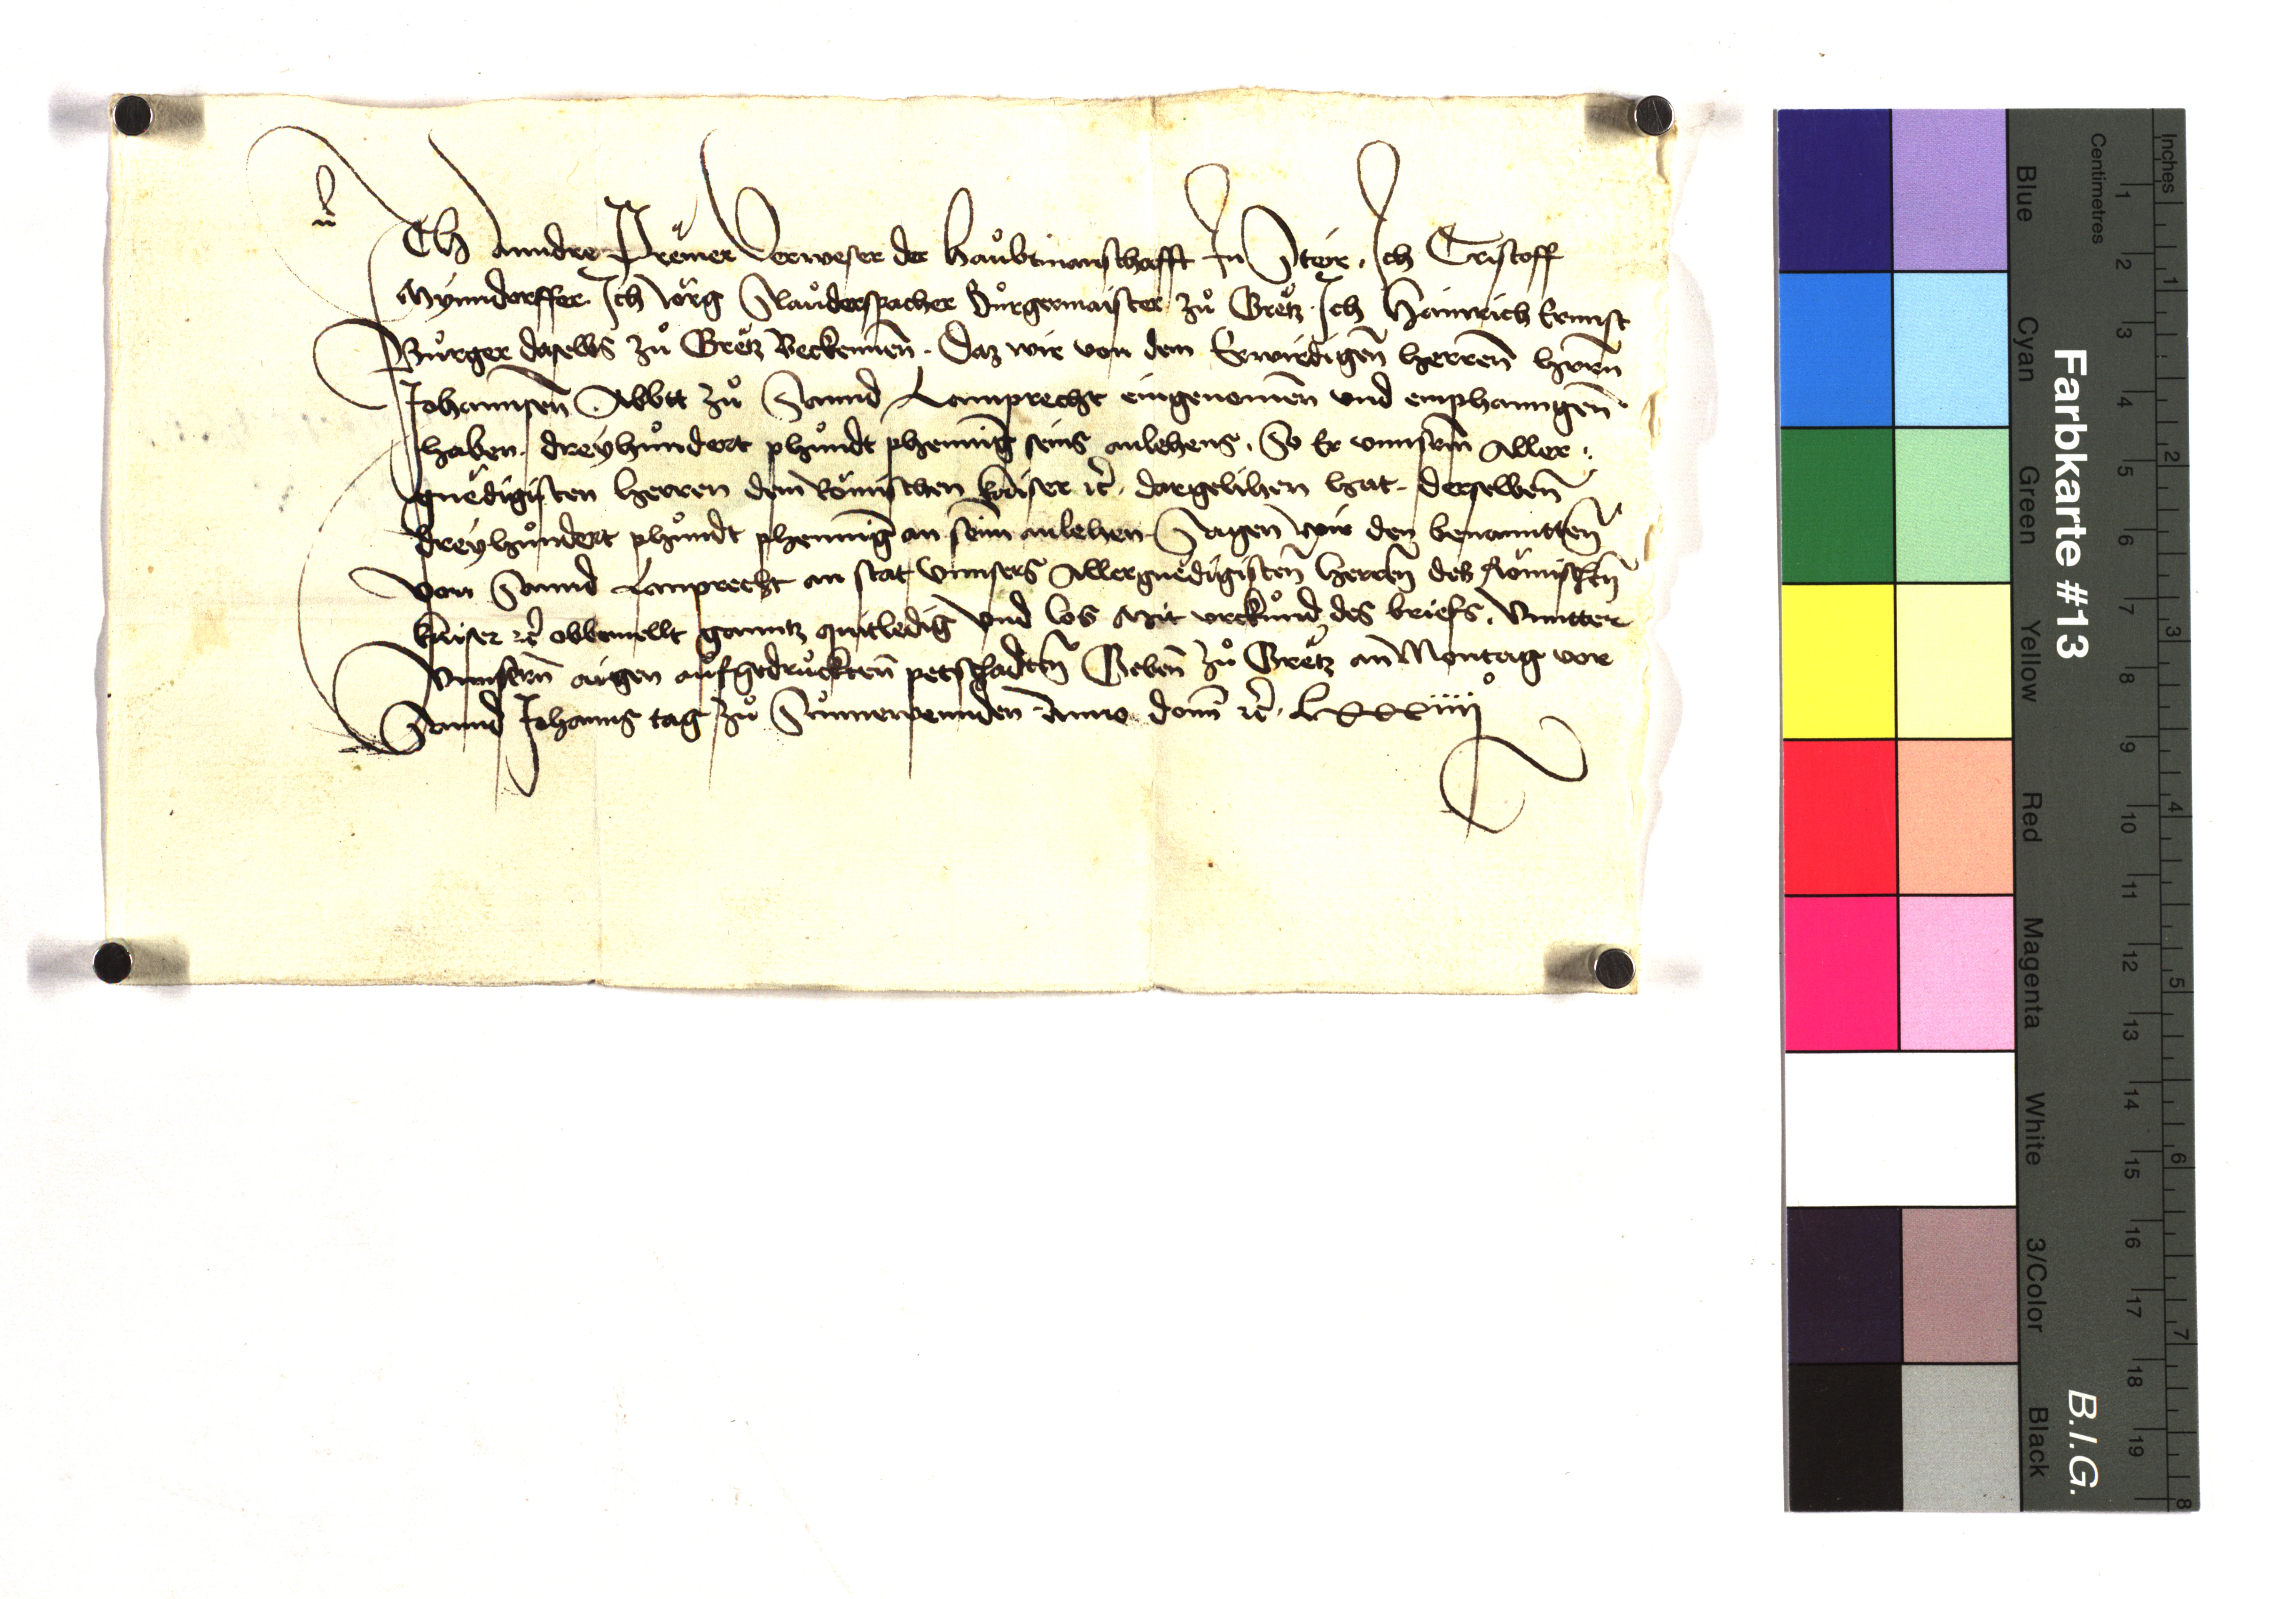 Ich anndre Premer verweser der haubtmanschafft In Steir. Ich Cristoff
Mynndorffer. Ich Jörg Slauderspacher Burgermaister zů Grëtz. Ich Hainrich Ernnst
Burger daselbs zů Grëtz Bekennen̄. Daz wir von dem Erwirdigen̄ herren̄ hern̄
Johannsen̄ Abbtt zů Sannd Lamprecht eingenomen̄ vnd emphanngen̄
haben. dreyhůndert phůndt phennīg seins anlehens. So Er vnnserm̄ Aller
gnëdigisten herren dem Römischen kaiser ꝛc̄. dargelihen hat. derselben̄
dreyhůndert phůndt phennīg an seim̄ anlehen Sagen wir den benanntten̄
von Sannd Lamprecht an stat vnnsers Allergnëdigisten̄ herren̄ des Römischen̄
kaiser ꝛc̄ obbemellt ganntz quitledig vnd los Mit vrkůnd des briefs. Vnntter
vnnsern̄ aigen aufgedruckten̄ petschadten̄ Geben̄ zů Grëtz an̄ Montag vor
Sannd Johanns tag zů Sůnnerwennden Anno dom̄ ꝛc̄. Lxxxiiii°
Farbkarte #13
B.I.G.
Inches
1 2 3 4 5 6 7 8
Centimetres
1 2 3 4 5 6 7 8 9 10 11 12 13 14 15 16 17 18 19
Blue Cyan Green Yellow Red Magenta White 3/Color Black